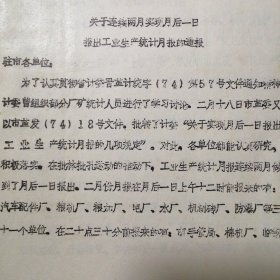 关于连续两月实现月后一日
报出工业生产统计月报的通报
驻市各单位：
为了认真贯彻省计委晋革计统字（74）第57号文件通知精神
计委曾组织部分厂矿统计人员进行了学习讨论。二月十八日市革委又
以市革发（74）18号文件，批转了计委“关于实现月后一日报出
工业生产统计月报的几项规定”。对此，各单位都能认真研究，
积极落实。在批林批孔运动的推动下，工业生产统计月报连续两月做
到了月后一日报出。二月份月报在月后一日上午十二时前报来的有：
汽车配件厂、粮机厂、粮加厂、电厂、水厂、机制砖厂、防腐厂等三
十一个单位。在二十点三十分前报来的有：矿务局、棉机厂、临